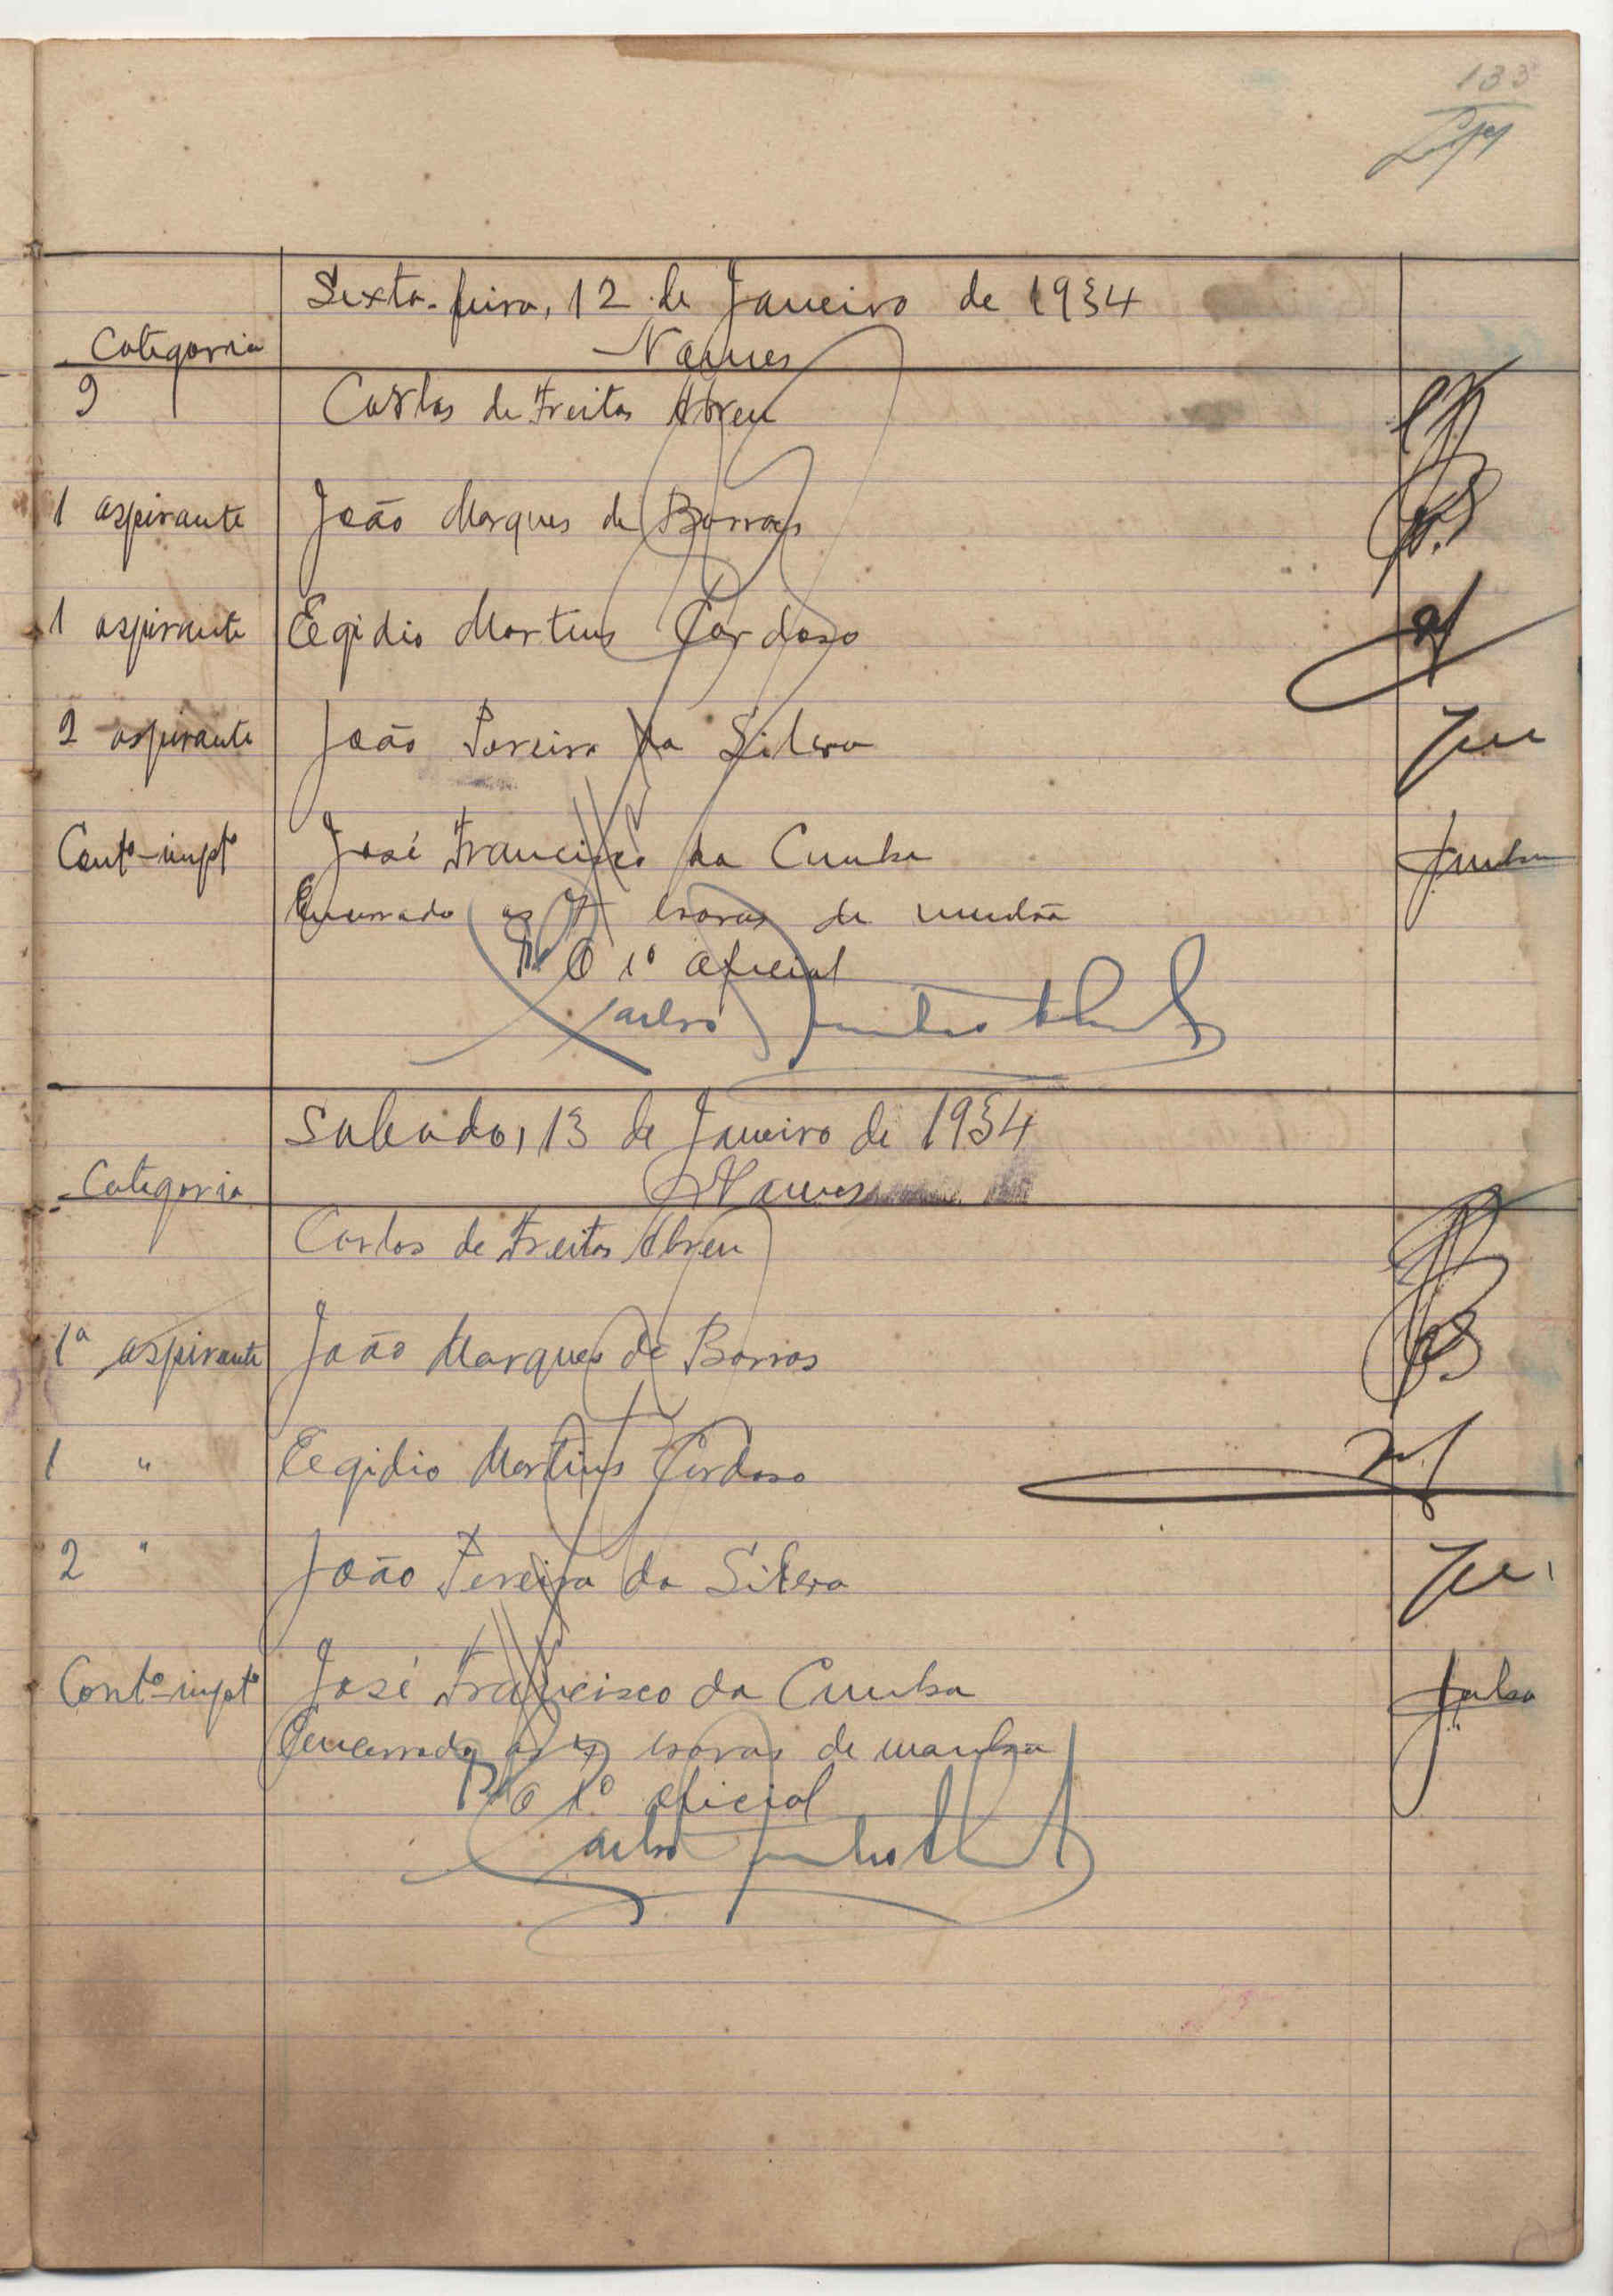 133
Sexta-feira, 12 de Janeiro de 1934
Categoria Nomes
Carlos de Freitas Abreu
1 aspirante João Marques de Barros
1 aspirante Egidio Martins Cardoso
2 aspirante João Pereira da Silva
Contº-impº José Francisco da Cunha
Encerrado as 7 horas de
O 1º oficial
Carlos
Sabado, 13 de Janeiro de 1934
Categoria Nomes
Carlos de Freitas Abreu
1ª aspirante João Marques de Barros
1 " Egidio Martins Cardoso
2 " João Pereira da Silva
Contº-impº José Francisco da Cunha
Encerrado as 7 horas de manha
O 1º oficial
Carlos